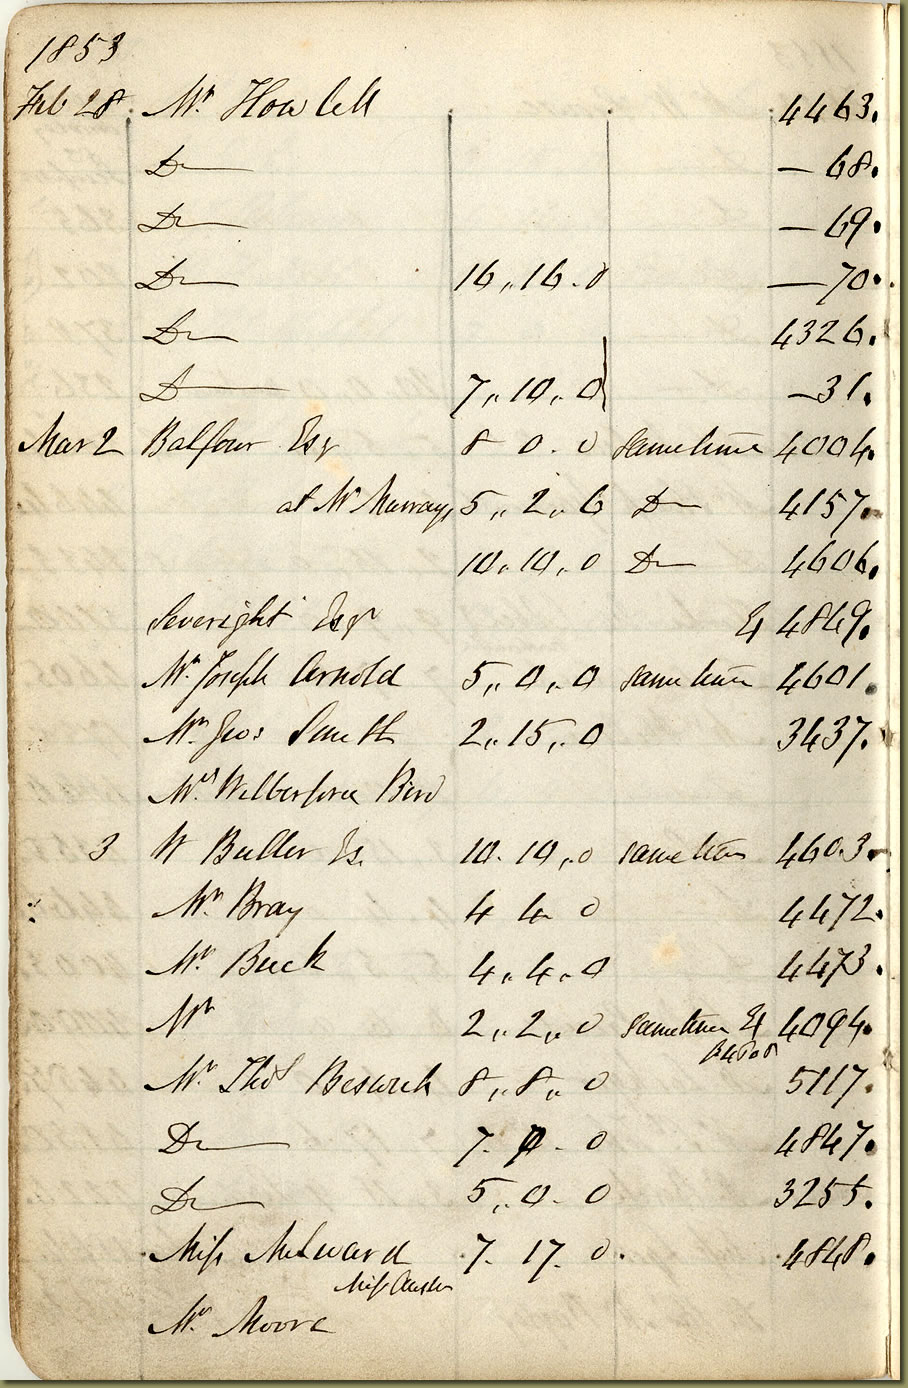 1853
Feb 28 Mr Howlett 4463.
Do — 68.
Do — 69.
Do 16,,16.0 — 70.
Do 4326.
Do 7,,10,,0 — 31.
Mar 2 Balfour Esq 8 0.0 sametime 4004.
at Mr Murrays 5,,2,,6 Do 4157.
10,,10,,0 Do 4606.
Severight Esqr 4849.
Mr Joseph Arnold 5,,0,,0 sametime 4601.
Mr Geo: Smith 2,,15,,0 3437.
Mrs Wilberforce Bird
3 W Butler Es. 10.10,,0 sametime 4603.
Mr Bray 4 4 0 4472.
Mr Buck 4,,4.0 4473.
Mr 2,,2,,0 sametime 4094.
Mr Thos Beswick 8,,8,,0 5117.
Do 7.7.0 4847.
Do 5,,0.0 3255.
Miss Milward 7.17.0. 4848.
Miss
Mr Moore